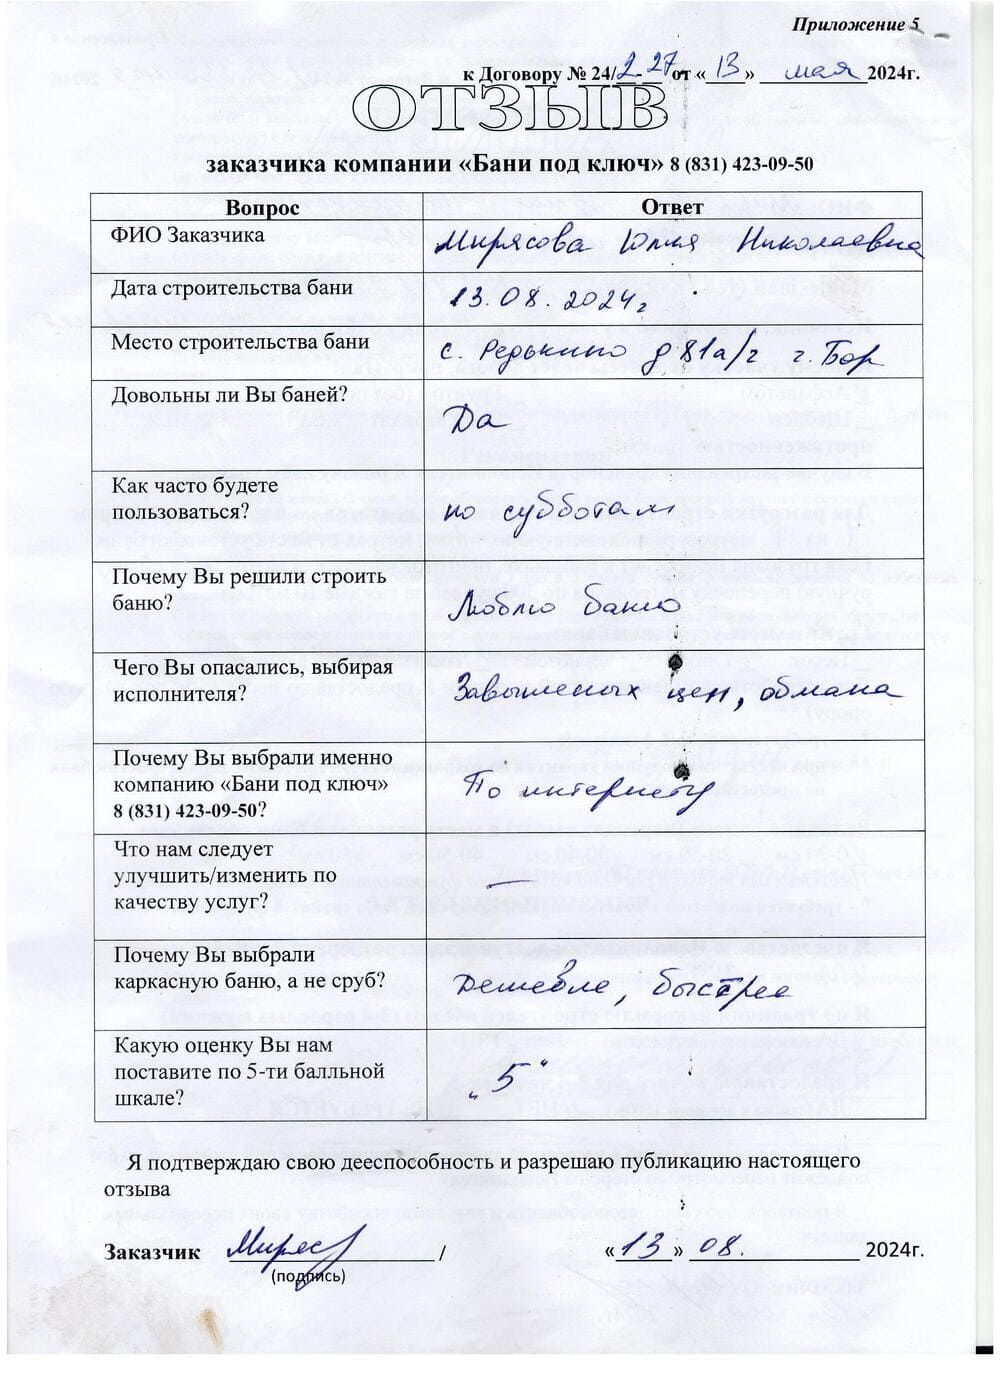 Приложение 5
к Договору № 24/2-27 от «13» мая 2024г.
ОТЗЫВ
заказчика компании «Бани под ключ» 8 (831) 423-09-50
Вопрос Ответ
ФИО Заказчика Мирясова Юлия Николаевна
Дата строительства бани 13.08.2024г
Место строительства бани с. Редькино д 81а/г г. Бор
Довольны ли Вы баней? Да
Как часто будете
пользоваться? по субботам
Почему Вы решили строить
баню? Люблю баню
Чего Вы опасались, выбирая
исполнителя? Завышеных цен, обмана
Почему Вы выбрали именно
компанию «Бани под ключ»
8 (831) 423-09-50? По интернету
Что нам следует
улучшить/изменить по
качеству услуг? —
Почему Вы выбрали
каркасную баню, а не сруб? Дешевле, быстрее
Какую оценку Вы нам
поставите по 5-ти балльной
шкале? „5“
Я подтверждаю свою дееспособность и разрешаю публикацию настоящего
отзыва
Заказчик Миряс / «13» 08. 2024г.
(подпись)